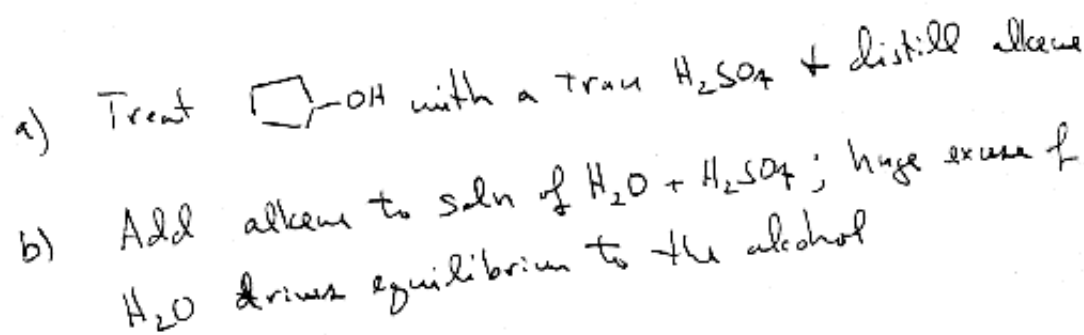 a) Treat -OH with a trace H₂SO₄ & distill alkene
b) Add alkene to soln of H₂O + H₂SO₄; huge excess of
H₂O drives equilibrium to the alcohol